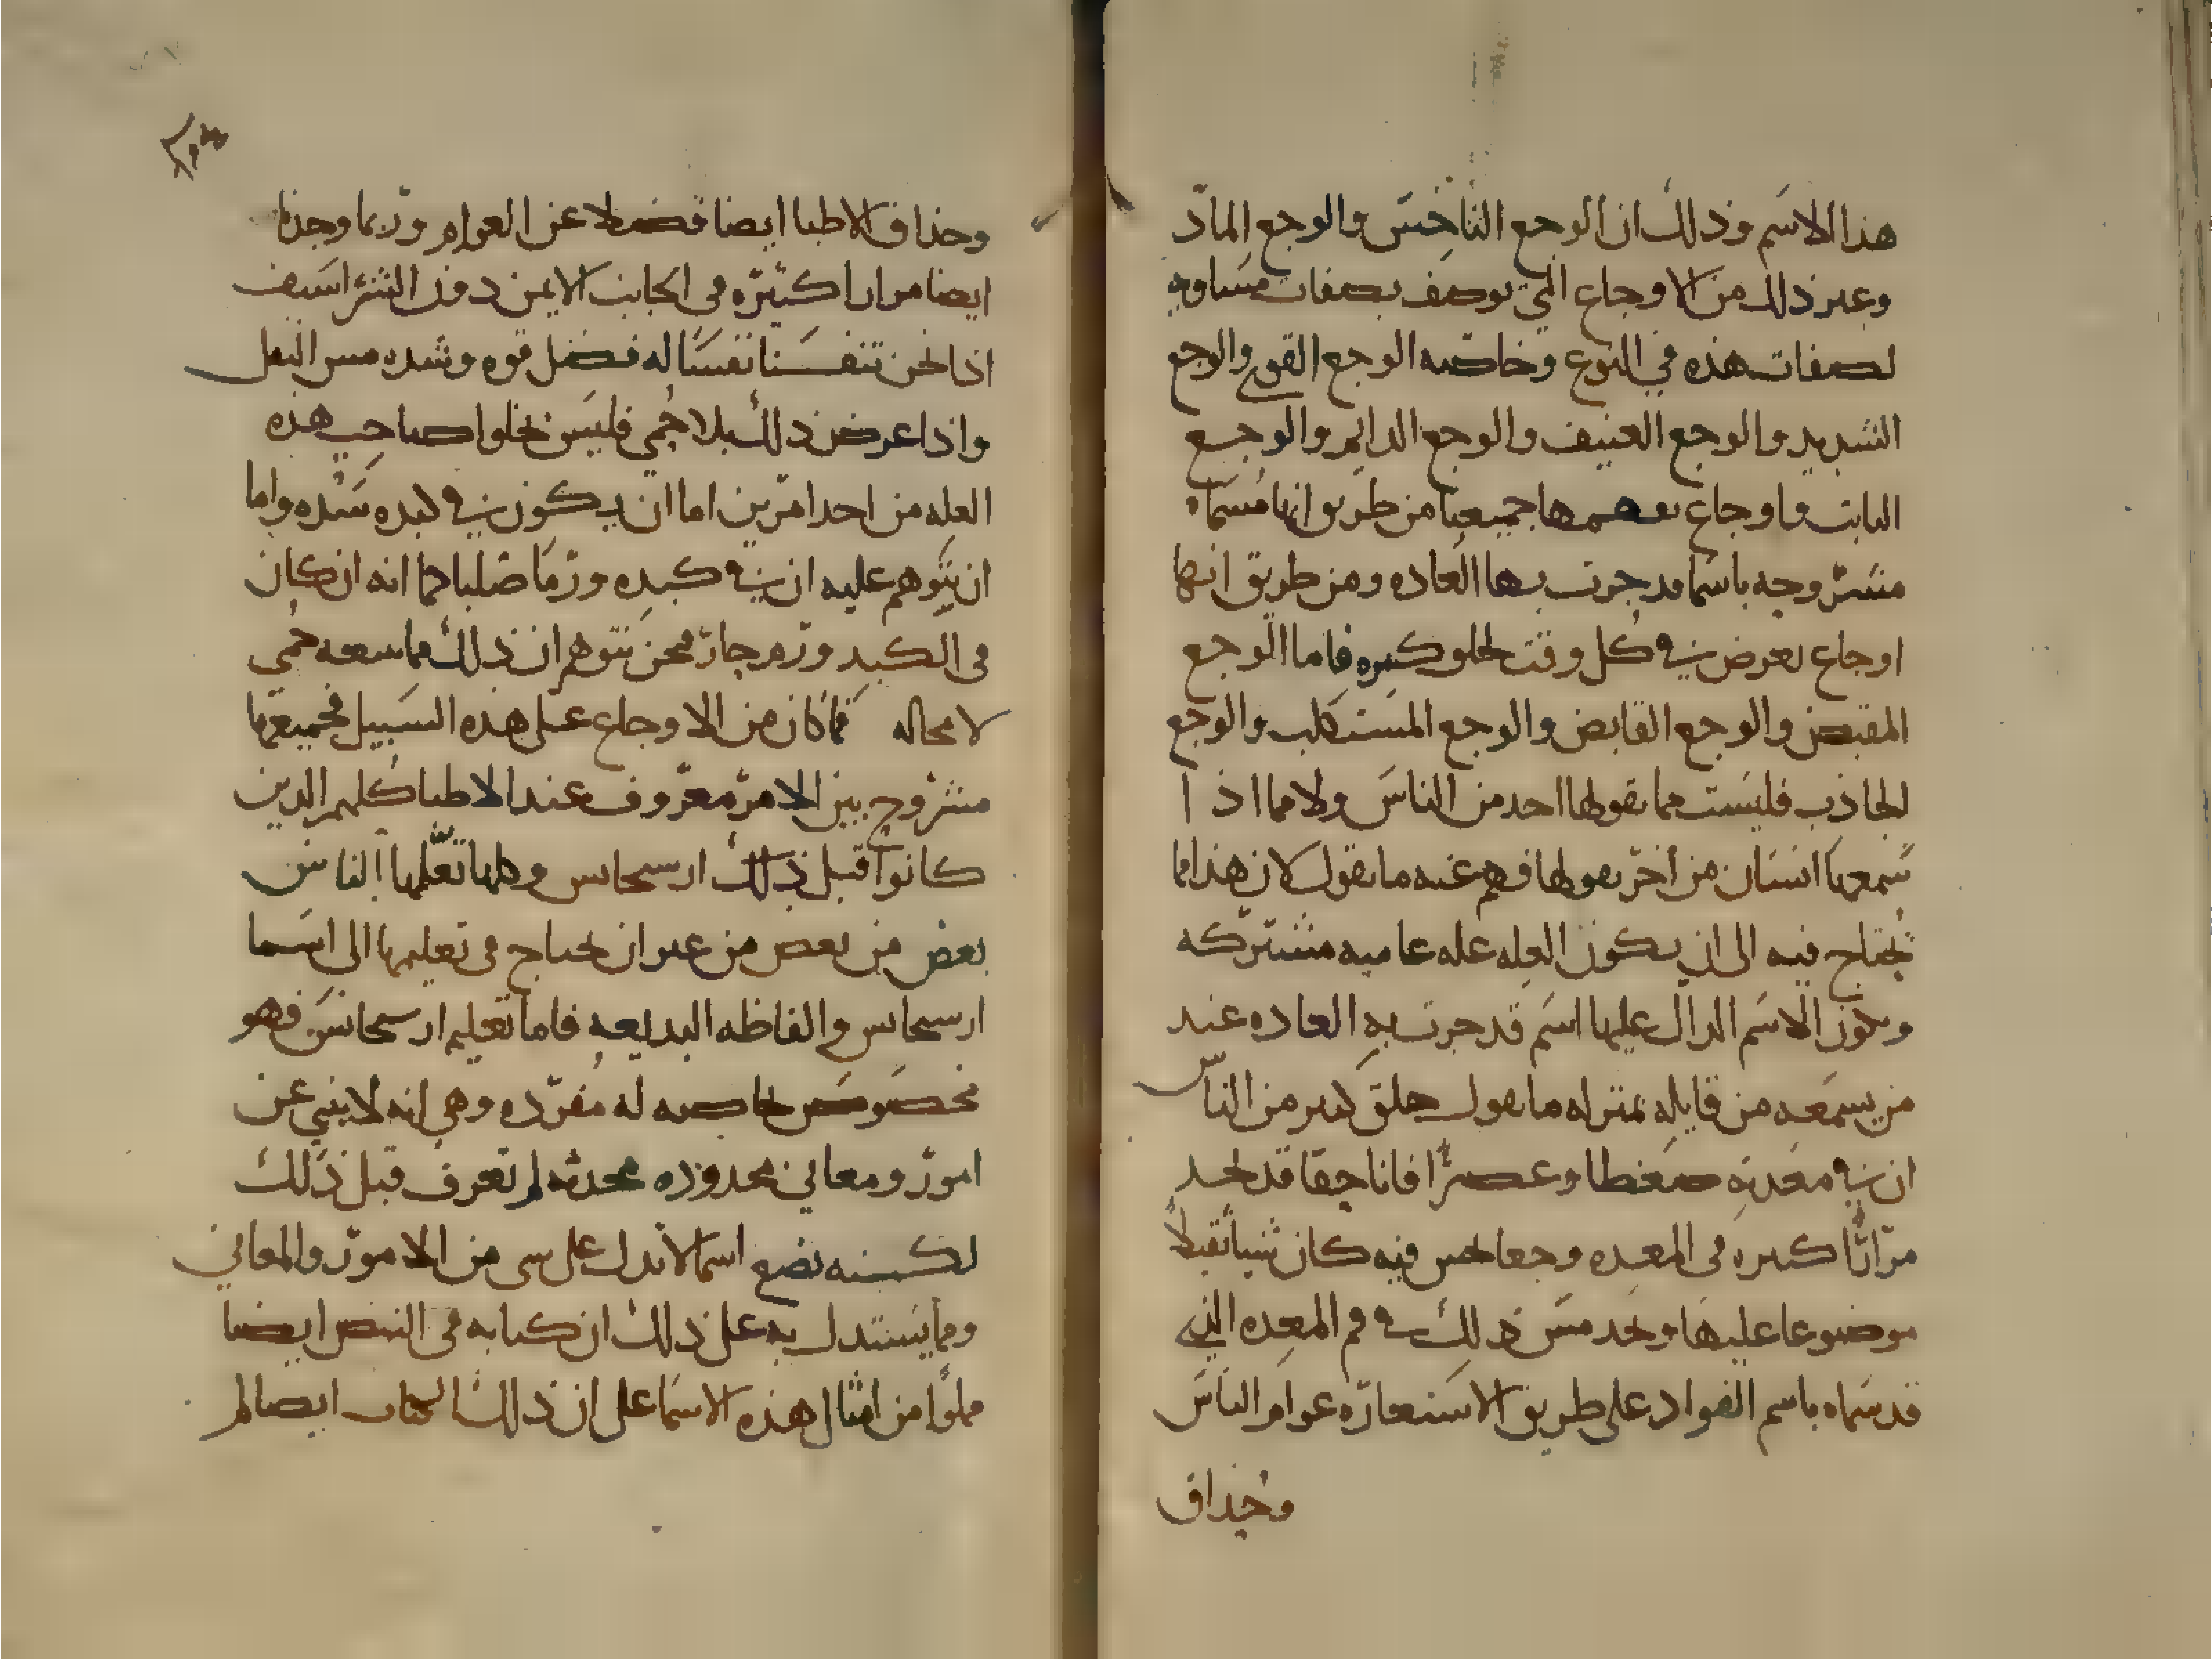 هذا الاسم وذلك ان الوجع الناخس والوجع الماد
وغير ذلك من الاوجاع التي توصف بصفات مساويه
لصفات هذه في النوع وخاصه الوجع القوي والوجع
الشديد والوجع العنيف والوجع الدايم والوجع
الثابت فاوجاع نفهمها جميعنا من طريق انها مسماه
مشروحه باسما قد جرت بها العاده ومن طريق انها
اوجاع تعرض في كل وقت لخلق كثيره فاما الوجع
المقبض والوجع القابض والوجع المستكلب والوجع
الجاذب فليست مما يقولها احد من الناس ولا مما اذا
سمعها انسان من اخر يقولها فهم عنه ما يقول لان هذا انما
يحتاج فيه الى ان يكون العله عله عاميه مشتركه
ويكون الاسم الدال عليها اسم قد جرت به العاده عند
من يسمعه من قايله بمنزله ما يقول خلق كثير من الناس
ان في معدته ضغطا وعصرا فانا حقا قد نجد
مرارا كثيره في المعده وجعا نحس فيه كان شيا ثقيلا
موضوعا عليها ونجد مس ذلك في فم المعده الذي
قد سماه باسم الفواد على طريق الاستعاره عوام الناس
وحذاق
وحذاق الاطبا ايضا فضلا عن العوام وربما وجدنا
ايضا مرارا كثيره في الجانب الايمن دون الشراسيف
اذا نحن تنفسنا تنفسا له فضل قوه وشده مس الثقل
واذا عرض ذلك بلا حمى فليس يخلوا صاحب هذه
العله من احد امرين اما ان يكون في كبده سده واما
ان نتوهم عليه ان في كبده ورما صلبا كما انه ان كان
في الكبد ورم حار فنحن نتوهم ان ذلك مما يتبعه حمى
لا محاله فما كان من الاوجاع على هذه السبيل فجميعها
مشروح بين الامر معروف عند الاطبا كلهم الذين
كانوا قبل ذلك ارسحانس وكلها تعلمها الناس
بعض من بعض من غير ان يحتاج في تعليمها الى اسما
ارسحانس والفاظه البديعه فاما تعليم ارسحانس فهو
مخصوص بخاصه له مفرده وهي انه لا ينبي عن
امور ومعاني محدوده محدثه لم تعرف قبل ذلك
لكنه يضع اسما لا تدل على شي من الامور والمعاني
ومما يستدل به على ذلك ان كتابه في النبض ايضا
مملوا من امثال هذه الاسما على ان ذلك الكتاب ايضا لم